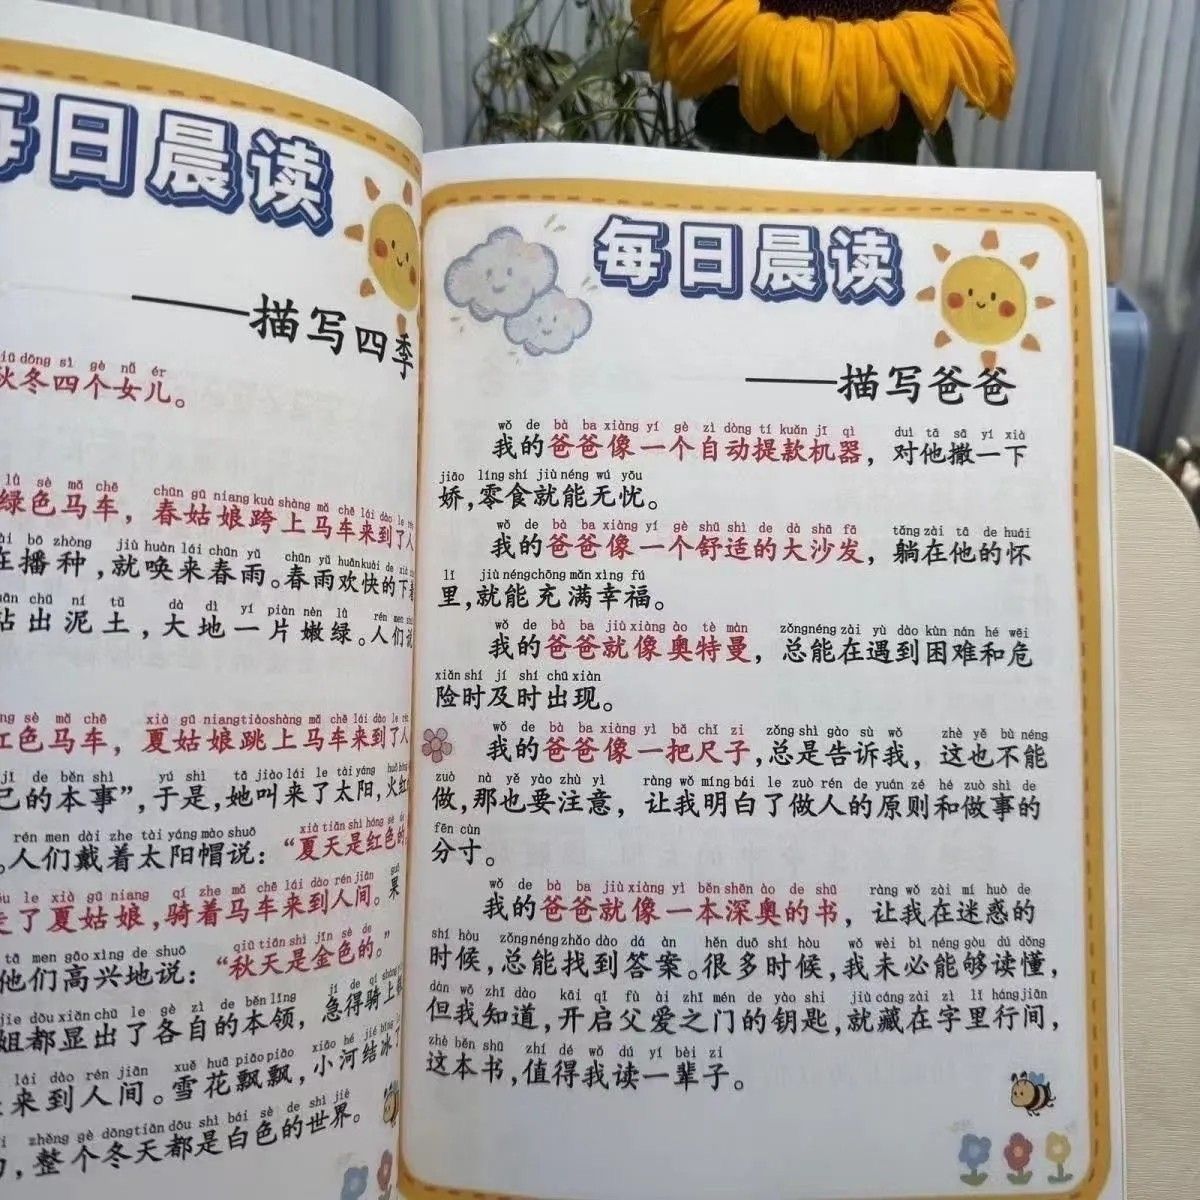 每日晨读
——描写四季
iū dōng sì gè nǚ ér
秋冬四个女儿。
lǜ sè mǎ chē chūn gū niang kuà shàng mǎ chē lái dào le rén
绿色马车，春姑娘跨上马车来到了人
bō zhòng jiù huàn lái chūn yǔ chūn yǔ huān kuài de xià
在播种,就唤来春雨。春雨欢快的下着
chū ní tǔ dà dì yí piàn nèn lǜ rén men
钻出泥土,大地一片嫩绿。人们
sè mǎ chē xià gū niang tiào shàng mǎ chē lái dào le rén
红色马车，夏姑娘跳上马车来到了人
jǐ de běn shì yú shì tā jiào lái le tài yáng huǒ hóng
己的本事”,于是,她叫来了太阳,火红
rén men dài zhe tài yáng mào shuō xià tiān shì hóng sè de
。人们戴着太阳帽说：“夏天是红色的
le xià gū niang qí zhe mǎ chē lái dào rén jiān guǒ
走了夏姑娘,骑着马车来到人间。果
tā men gāo xìng de shuō qiū tiān shì jīn sè de
他们高兴地说：“秋天是金色的。”
jie dōu xiǎn chū le gè zì de běn lǐng jí de qí shàng
姐都显出了各自的本领，急得骑上
lái dào rén jiān xuě huā piāo piāo xiǎo hé jié bīng
来到人间。雪花飘飘,小河结冰了
zhěng gè dōng tiān dōu shì bái sè de shì jiè
,整个冬天都是白色的世界。
每日晨读
——描写爸爸
wǒ de bà ba xiàng yí gè zì dòng tí kuǎn jī qì duì tā sā yí xià
我的爸爸像一个自动提款机器，对他撒一下
jiāo líng shí jiù néng wú yōu
娇,零食就能无忧。
wǒ de bà ba xiàng yí gè shū shì de dà shā fā tǎng zài tā de huái
我的爸爸像一个舒适的大沙发，躺在他的怀
lǐ jiù néng chōng mǎn xìng fú
里,就能充满幸福。
wǒ de bà ba jiù xiàng ào tè màn zǒng néng zài yù dào kùn nán hé wēi
我的爸爸就像奥特曼，总能在遇到困难和危
xiǎn shí jí shí chū xiàn
险时及时出现。
wǒ de bà ba xiàng yì bǎ chǐ zi zǒng shì gào sù wǒ zhè yě bù néng
我的爸爸像一把尺子,总是告诉我，这也不能
zuò nà yě yào zhù yì ràng wǒ míng bái le zuò rén de yuán zé hé zuò shì de
做,那也要注意，让我明白了做人的原则和做事的
fēn cùn
分寸。
wǒ de bà ba jiù xiàng yì běn shēn ào de shū ràng wǒ zài mí huò de
我的爸爸就像一本深奥的书，让我在迷惑的
shí hòu zǒng néng zhǎo dào dá àn hěn duō shí hòu wǒ wèi bì néng gòu dú dǒng
时候,总能找到答案。很多时候,我未必能够读懂,
dàn wǒ zhī dào kāi qǐ fù ài zhī mén de yào shi jiù cáng zài zì lǐ háng jiān
但我知道,开启父爱之门的钥匙,就藏在字里行间,
zhè běn shū zhí dé wǒ dú yí bèi zi
这本书,值得我读一辈子。